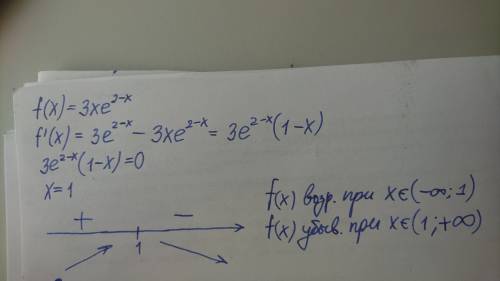 f(x) = 3xe^{2-x}
f'(x) = 3e^{2-x} - 3xe^{2-x} = 3e^{2-x}(1-x)
3e^{2-x}(1-x)=0
x=1
+ −
1
f(x) возр. при x∈(-∞;1)
f(x) убыв. при x∈(1;+∞)